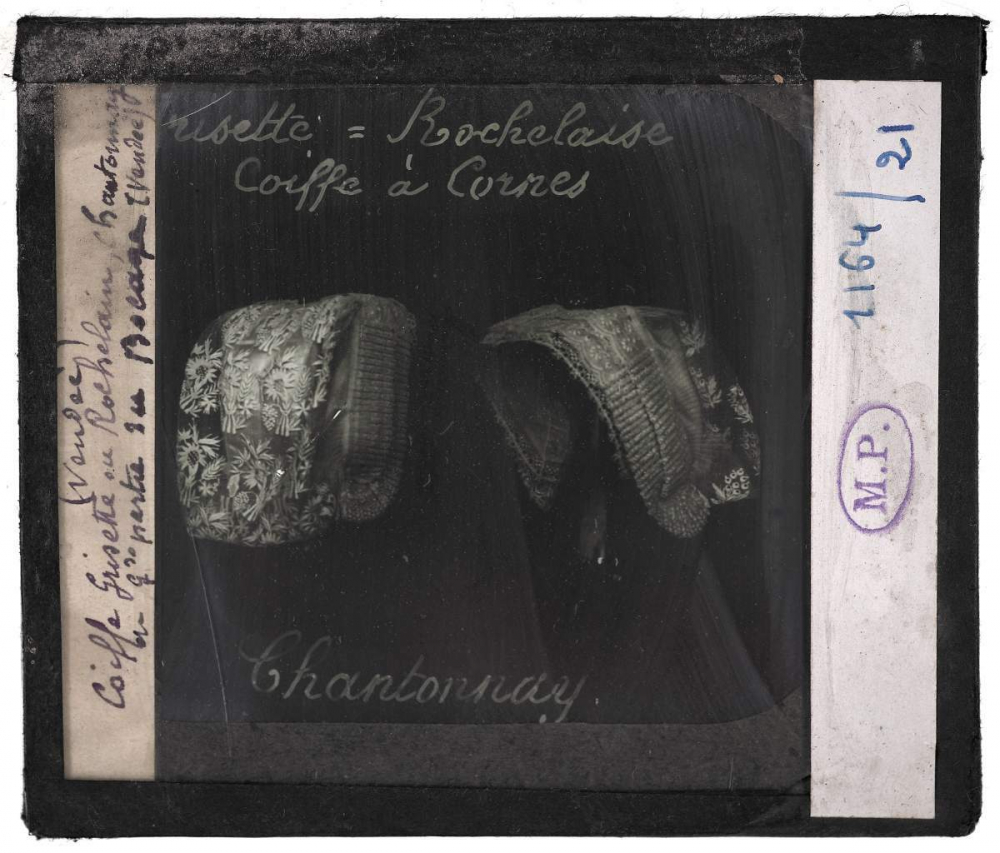 risette = Rochelaise
Coiffe à Cornes
Chantonnay
(Vendée)
Coiffe Grisette ou Rochelain, Chantonnay
partie du Bocage (Vendée)
1164/21
M.P.